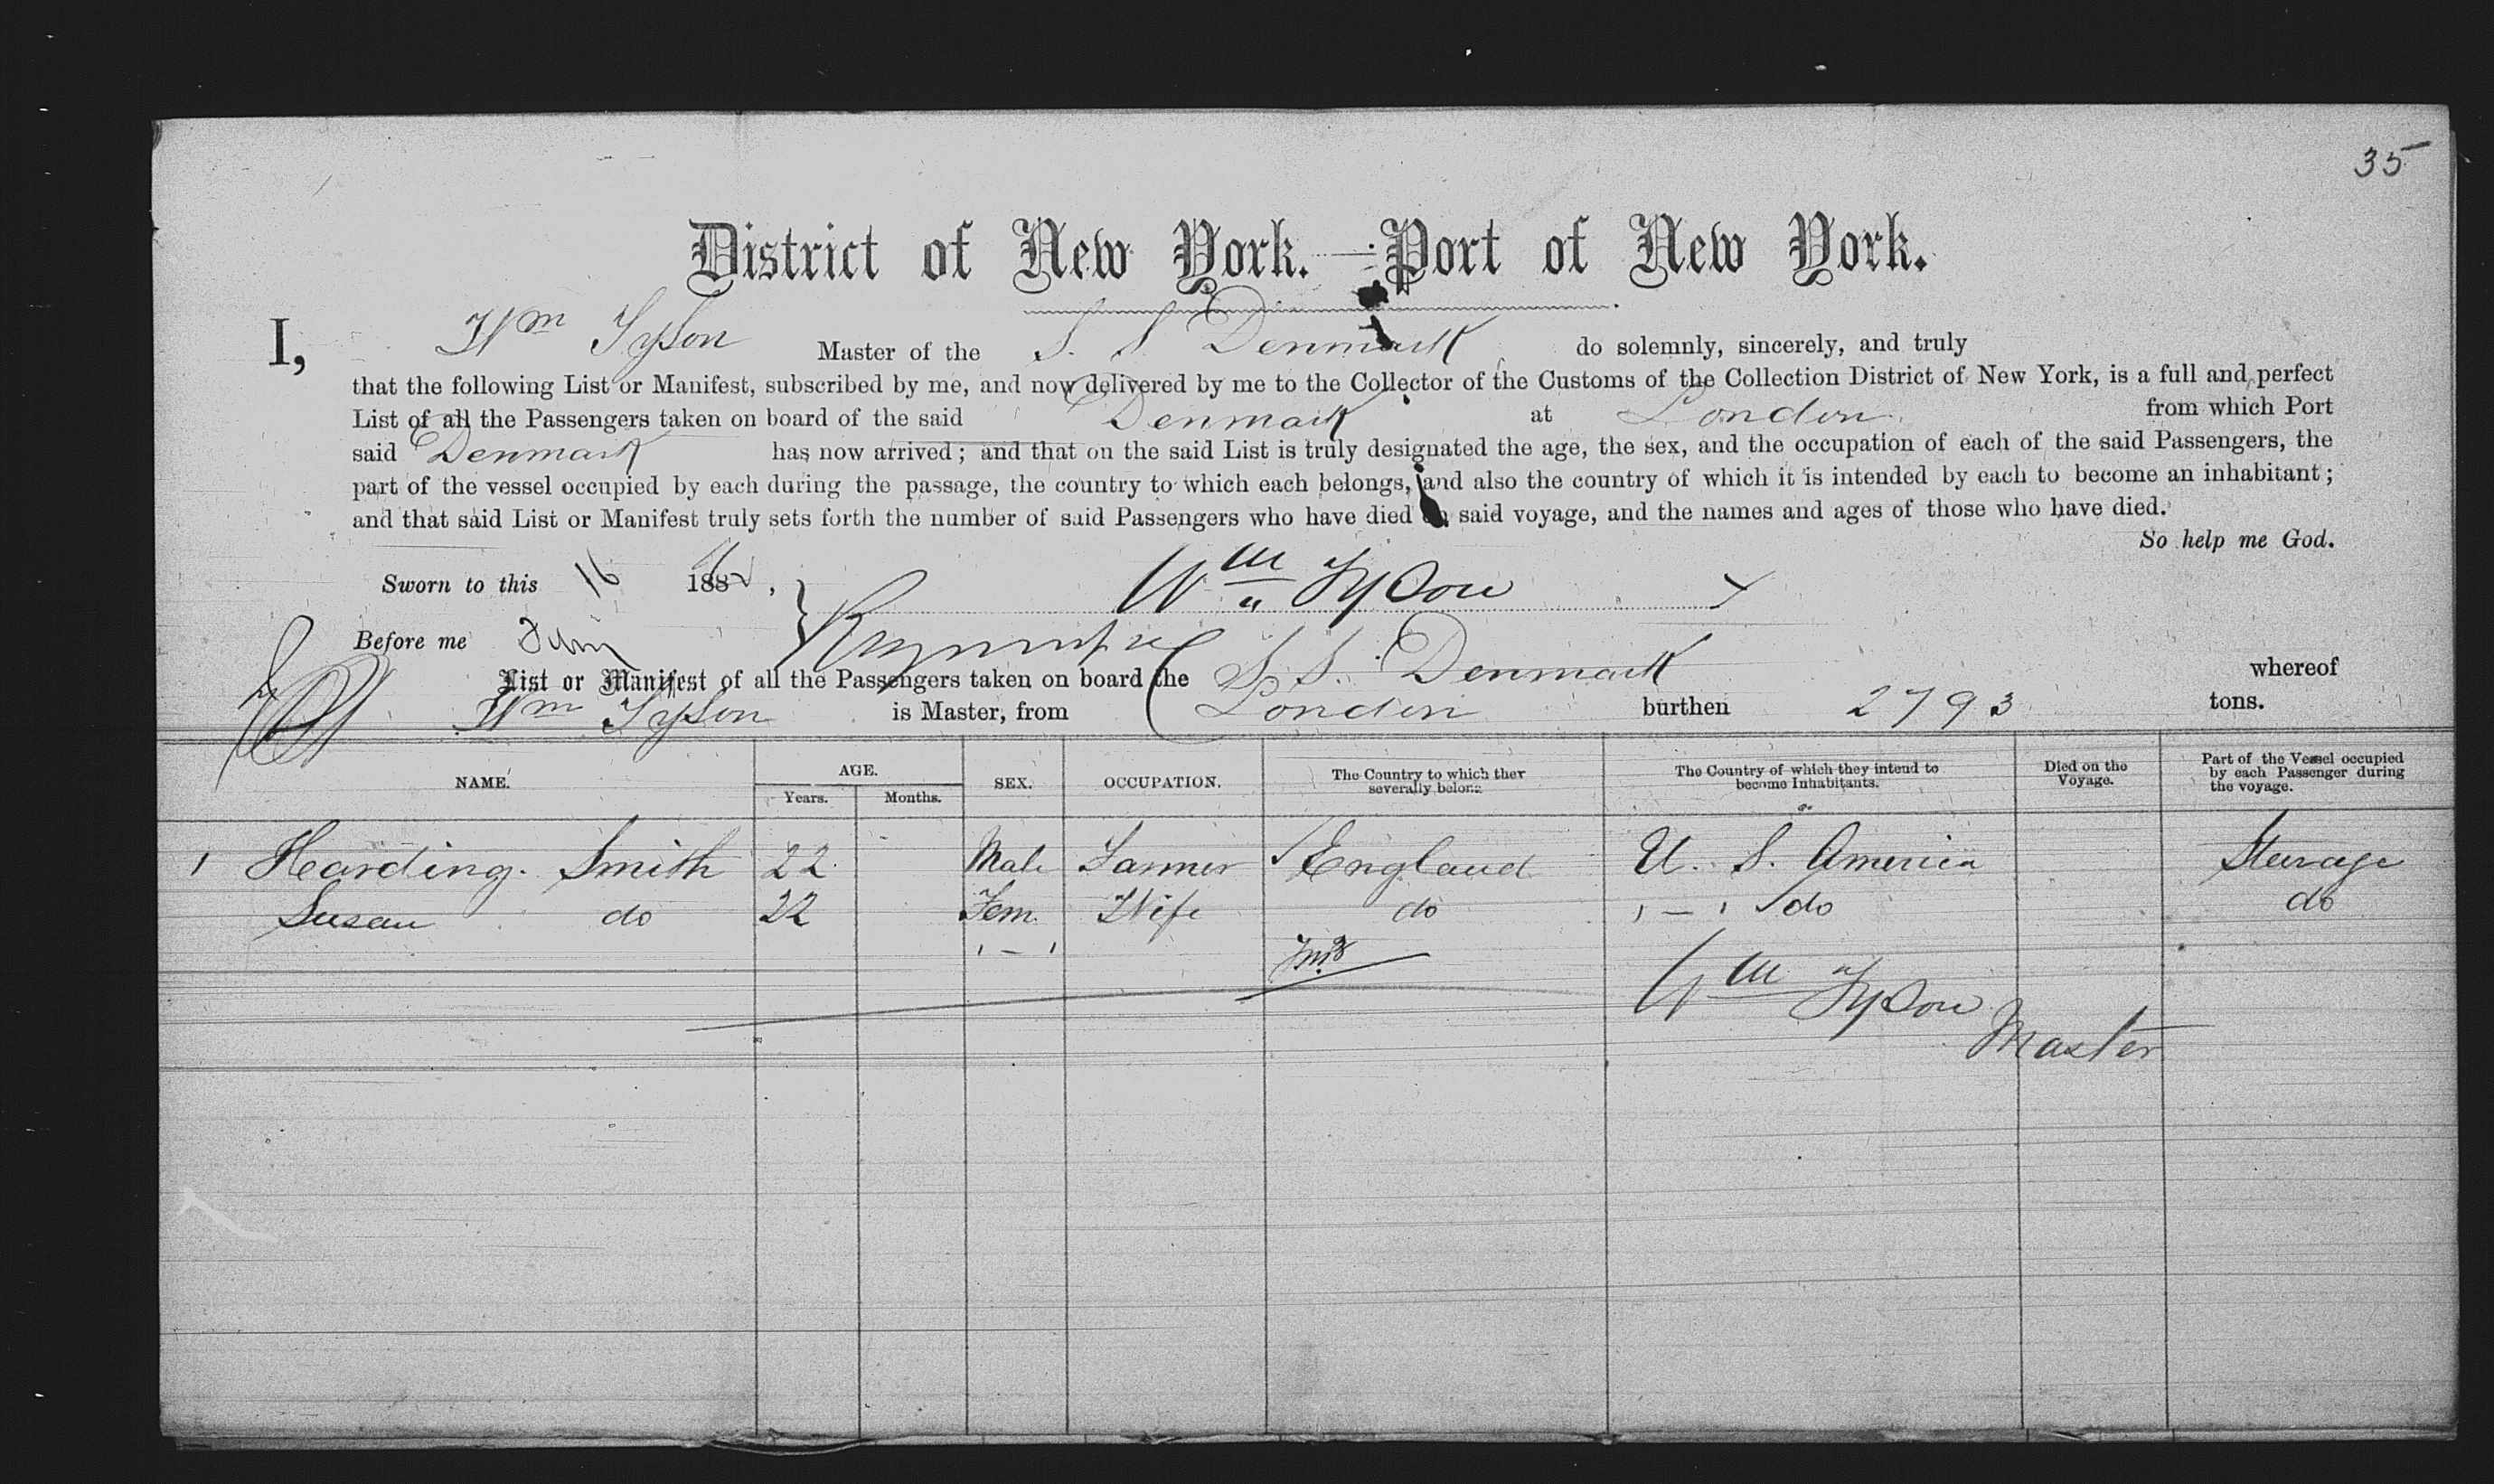 35
District of New York. — Port of New York.
I, Wm Tyson Master of the S. S Denmark do solemnly, sincerely, and truly
that the following List or Manifest, subscribed by me, and now delivered by me to the Collector of the Customs of the Collection District of New York, is a full and perfect
List of all the Passengers taken on board of the said Denmark at London from which Port
said Denmark has now arrived; and that on the said List is truly designated the age, the sex, and the occupation of each of the said Passengers, the
part of the vessel occupied by each during the passage, the country to which each belongs, and also the country of which it is intended by each to become an inhabitant;
and that said List or Manifest truly sets forth the number of said Passengers who have died said voyage, and the names and ages of those who have died.
So help me God.
Sworn to this 16 188 , Wm Tyson
Before me
List or Manifest of all the Passengers taken on board the S. S. Denmark whereof
Wm Tyson is Master, from London burthen 2793 tons.
NAME. AGE. Years. Months. SEX. OCCUPATION. The Country to which ther severally belong The Country of which they intend to become Inhabitants. Died on the Voyage. Part of the Vessel occupied by each Passenger during the voyage.
1 Harding. Smith 22 Male Farmer England U. S. America Steerage
Susan do 22 Fem. Wife do " do do
Wm Tyson
Master